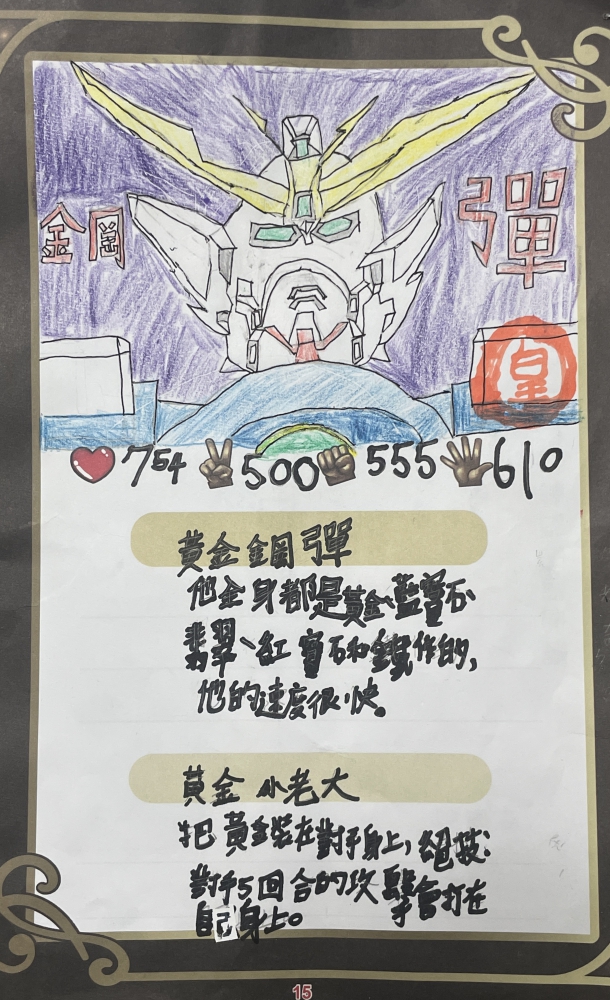 金鋼
彈
皇
754 500 555 610
黃金鋼彈
他全身都是黃金、藍寶石、
翡翠、紅寶石和鑽作的,
他的速度很快。
黃金小老大
把黃金裝在對手身上,絕技:
對手5回合的攻擊會打在
自己身上。
15